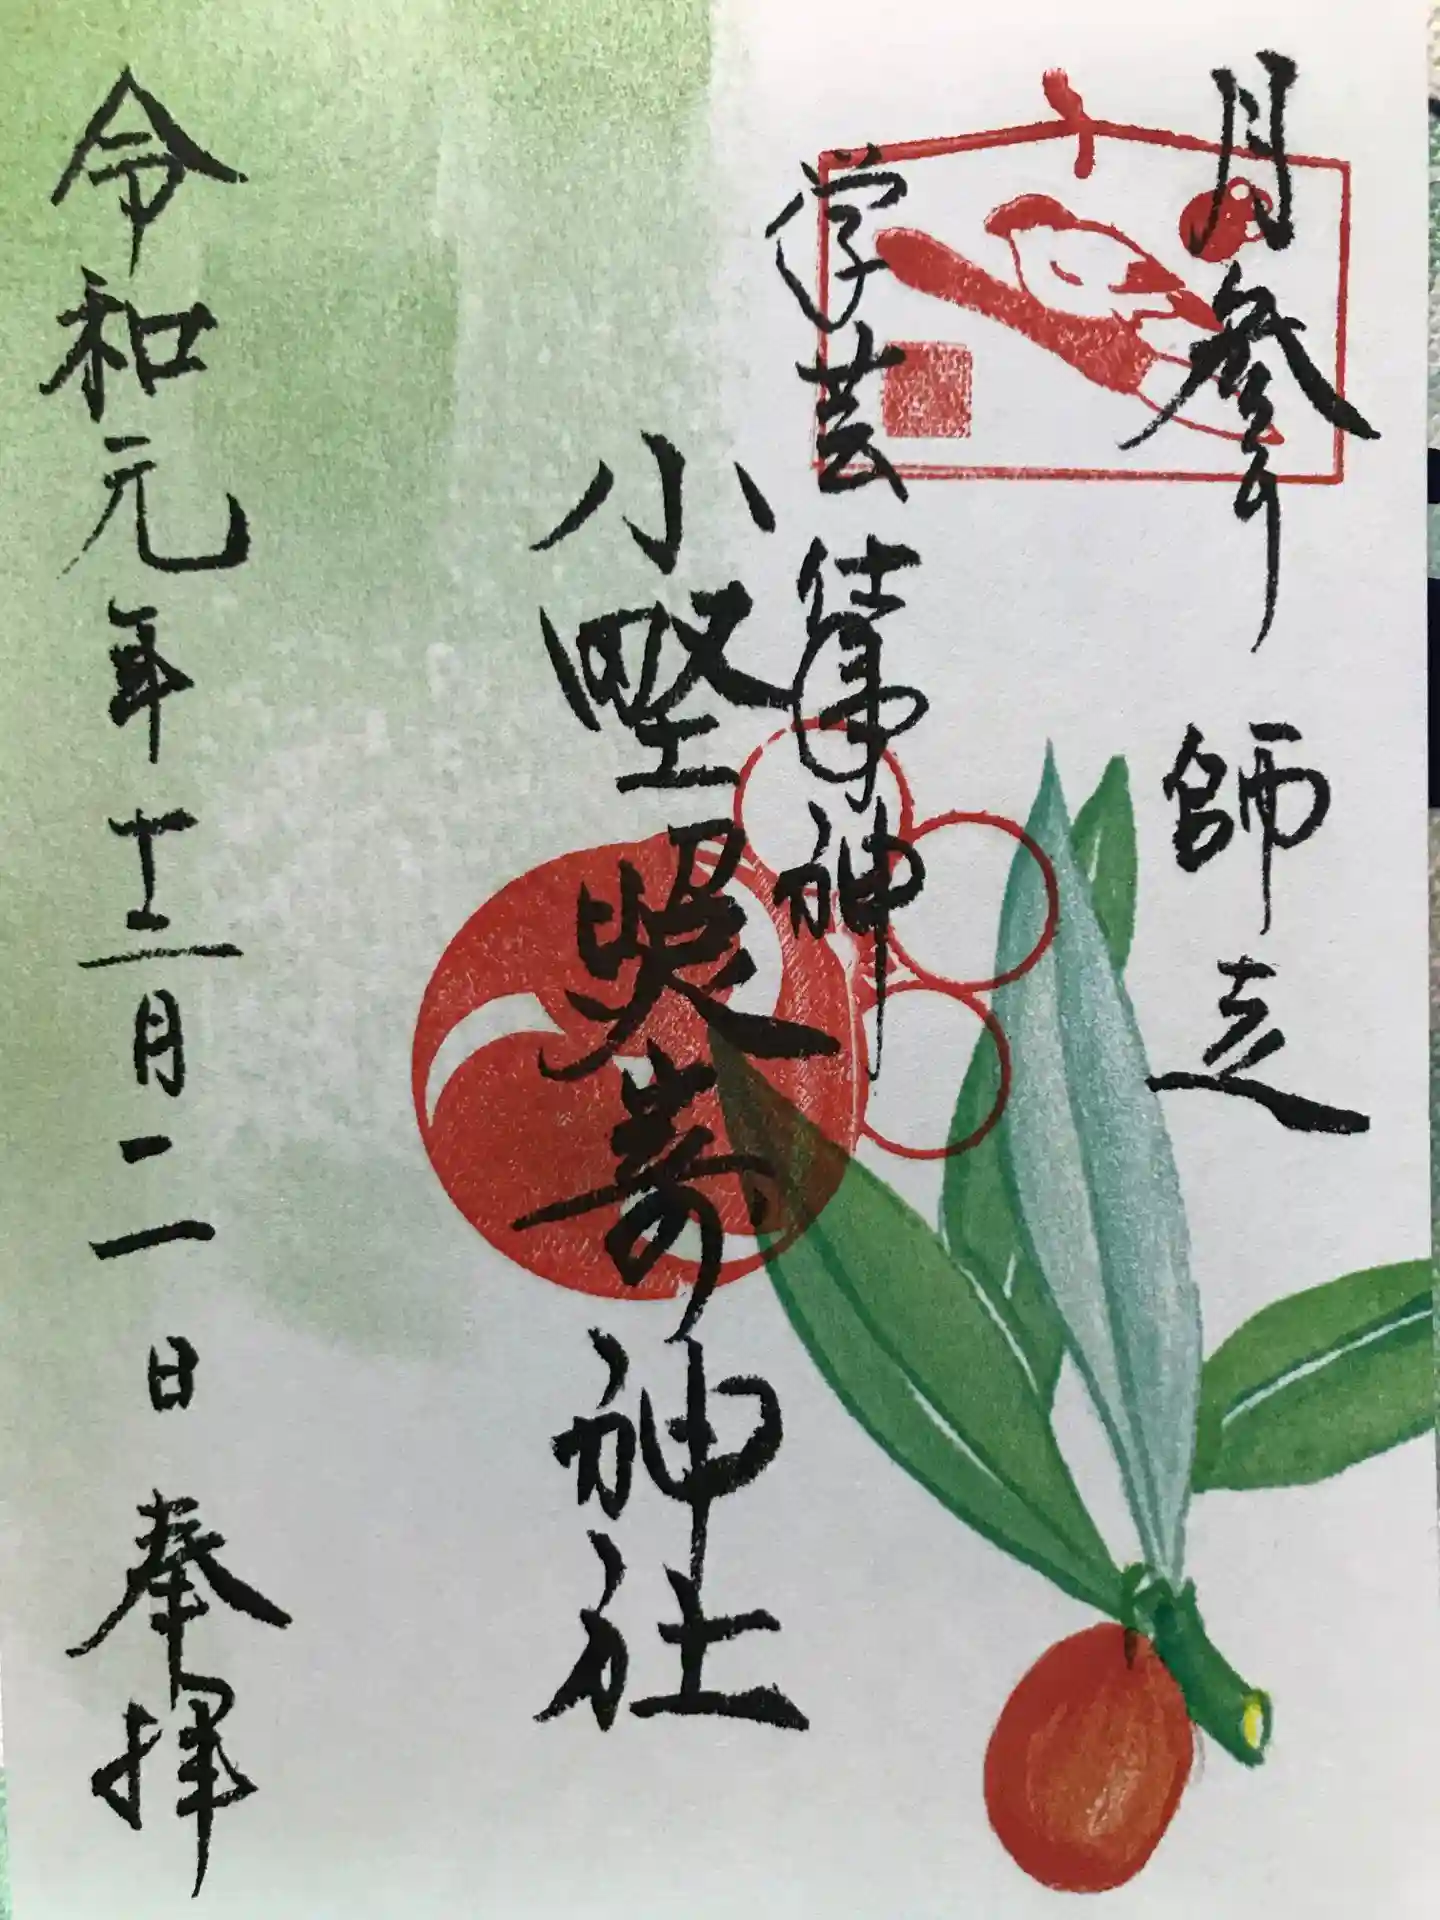 月参り 師走
学芸 神
小野照崎神社
令和元年十二月二日 奉拝